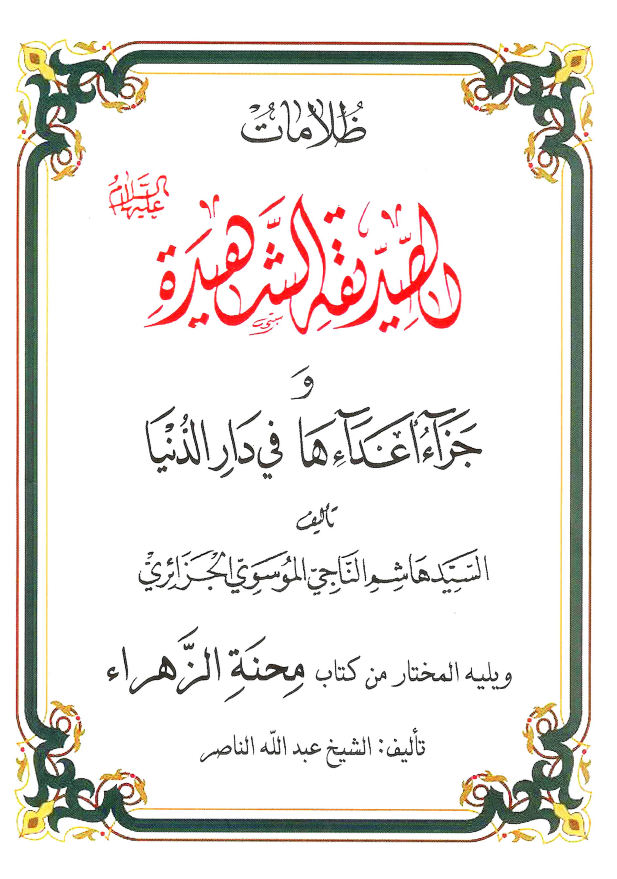 ظُلامات
الصِّدِّيقَةِ الشَّهِيدَةِ
عَلَيْهَا السَّلَامُ
وَ
جَزَآءُ أَعْدَآءِهَا فِي دَارِ الدُّنْيَا
تأليف
السَّيِّد هَاشِمِ النَّاجِيّ المُوسَوِيّ الجَزَائِرِيّ
ويليه المختار من كتاب مِحنَةِ الزَّهراء
تأليف: الشيخ عبد الله الناصر